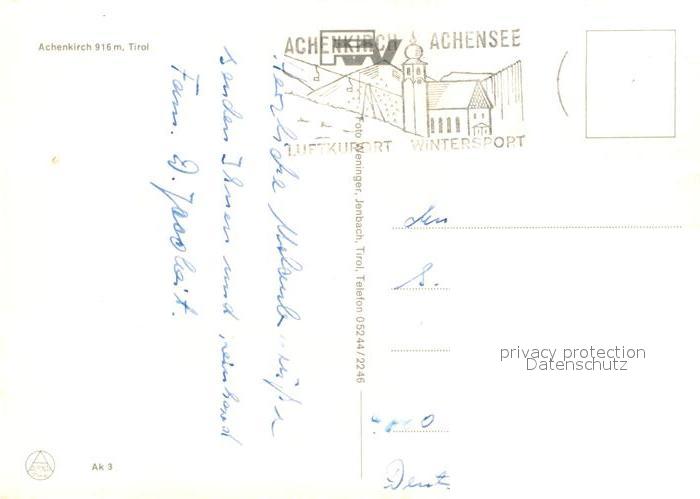 Achenkirch 916 m, Tirol
Herzliche Urlaubsgrüße
senden Ihnen und
Fam. D.
Ak 3
Foto Weninger, Jenbach, Tirol, Telefon 05244/2246
ACHENKIRCH ACHENSEE
LUFTKURORT WINTERSPORT
privacy protection
Datenschutz